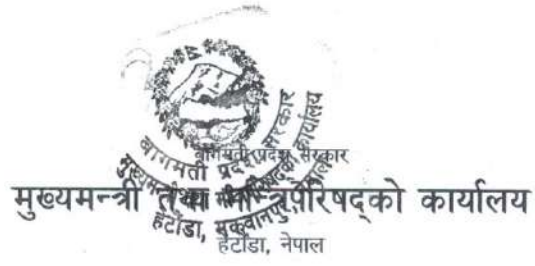 बागमती प्रदेश सरकार
मुख्यमन्त्री तथा मन्त्रिपरिषद्को कार्यालय
हेटौंडा, नेपाल
बागमती प्रदेश सरकार
मुख्यमन्त्री तथा मन्त्रिपरिषद्को कार्यालय
हेटौंडा, मकवानपुर, नेपाल